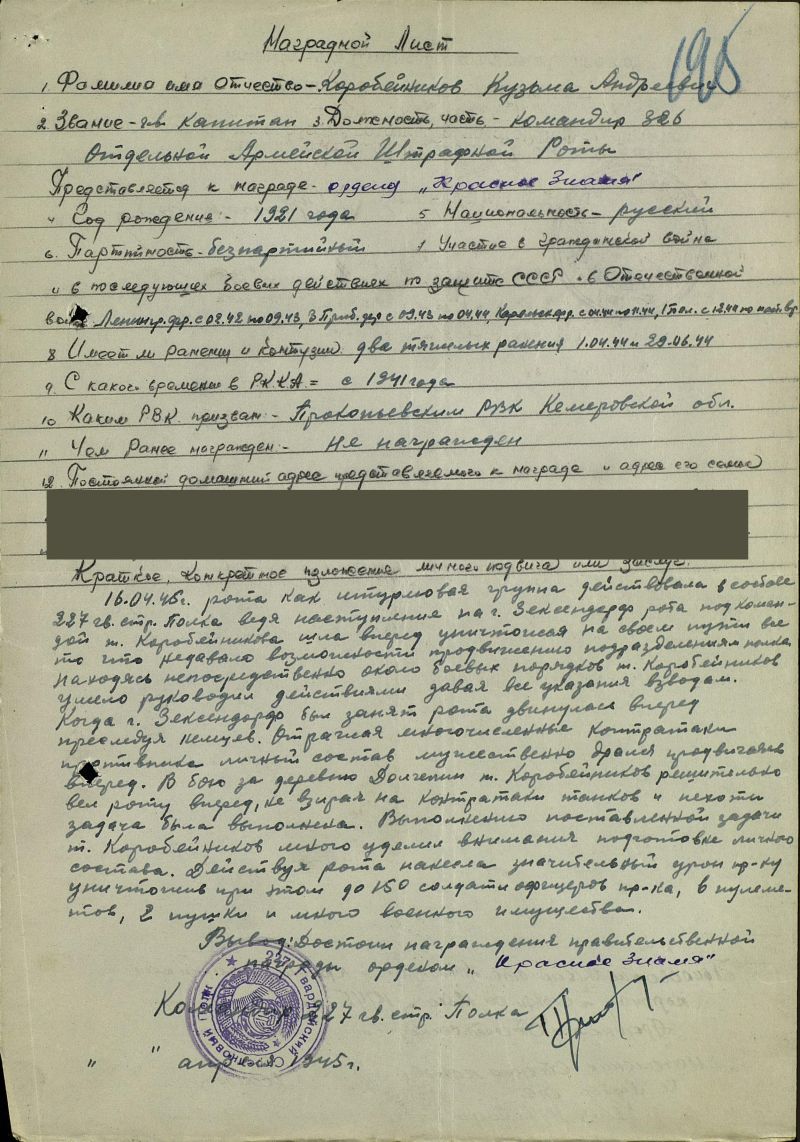 Наградной Лист
195
1. Фамилия има Отчество - Коробейников Кузьма Андреевич
2. Звание - гв. капитан 3. Должность, часть - командир 326
Отдельной Армейской Штрафной Роты
Представляется к награде - ордену "Красное Знамя"
4 Год рождения:- 1921 года 5 Национальность - русский
6. Партийность - безпартийный 7 Участие в гражданской война
и в последующих боевых действиях по защите СССР в Отечественной
войне Ленингр. фр. с 02.42 по 09.43, 3 Приб. фр с 09.43 по 04.44, Карельск фр. с 04.44 по 11.44, 1 Бел. с 12.44 по наст. вр.
8 Имеет ли ранения и контузии: два тяжелых ранения 1.04.44 и 29.06.44
9. С какого времени в РККА = с 1941 года
10 Каким РВК призван:- Прокопьевским РВК Кемеровской обл.
11 Чем ранее награжден:- Не награжден
12. Постоянной домашний адрес представляемого к награде и адрес его семьи
Краткое, конкретное изложение личного подвига или заслуг.
16.04.45г. рота как штурмовая группа действовала в составе
227 гв. стр. Полка ведя наступление на г. Зексендорф рота под коман-
дой т. Коробейникова шла вперед уничтожая на своем пути все
то что недавало возможности продвижению подразделениям полка.
Находясь непосредственно около боевых порядков т. Коробейников
умело руководил действиями давая все указания взводам.
Когда г. Зексендорф был занят рота двинулась вперед
преследуя немцев. Отражая многочисленные контратаки
противника личный состав мужественно дрался продвигаясь
вперед. В бою за деревню Долгелин т. Коробейников решительно
вел роту вперед, не взирая на контратаки танков и пехоты
задача была выполнена. Выполнению поставленной задачи
т. Коробейников много уделил внимания подготовке личного
состава. Действуя рота нанесла значительный урон пр-ку
уничтожив при этом до 150 солдат и офицеров пр-ка, 6 пулеме-
тов, 2 пушки и много военного имущества.
Вывод: Достоин награждения правительственной
награды орденом "Красное Знамя"
Командир 227 гв. стр. Полка
" " апреля 1945г.
227 Гвардейский Стрелковый Полк